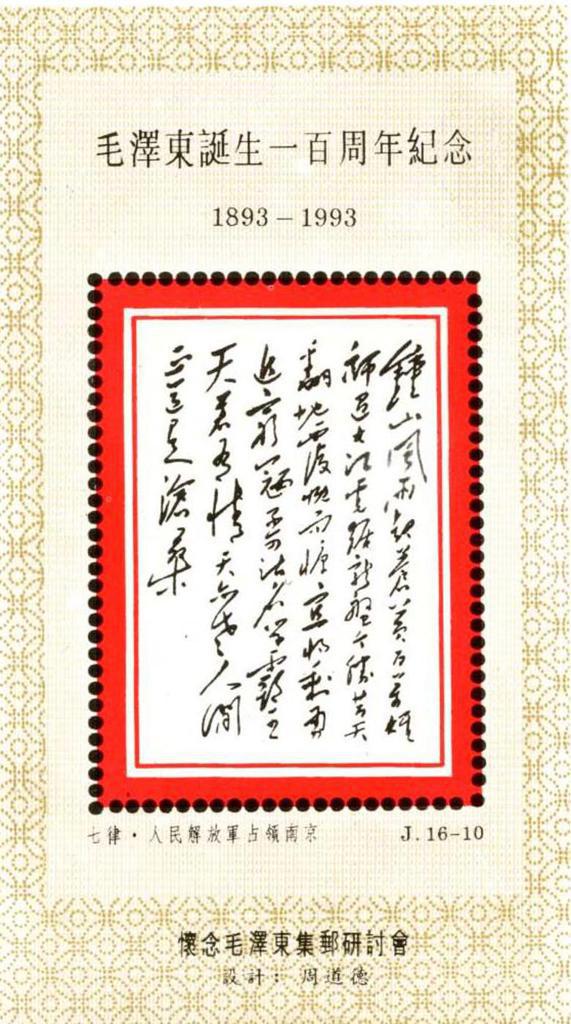 毛澤東誕生一百周年紀念
1893－1993
鍾山風雨起蒼黃百萬雄
師過大江虎踞龍盤今勝昔天
翻地覆慨而慷宜將剩勇
追窮寇不可沽名學霸王
天若有情天亦老人間
正道是滄桑
七律·人民解放軍占領南京
J.16-10
懷念毛澤東集郵研討會
設計：周道德